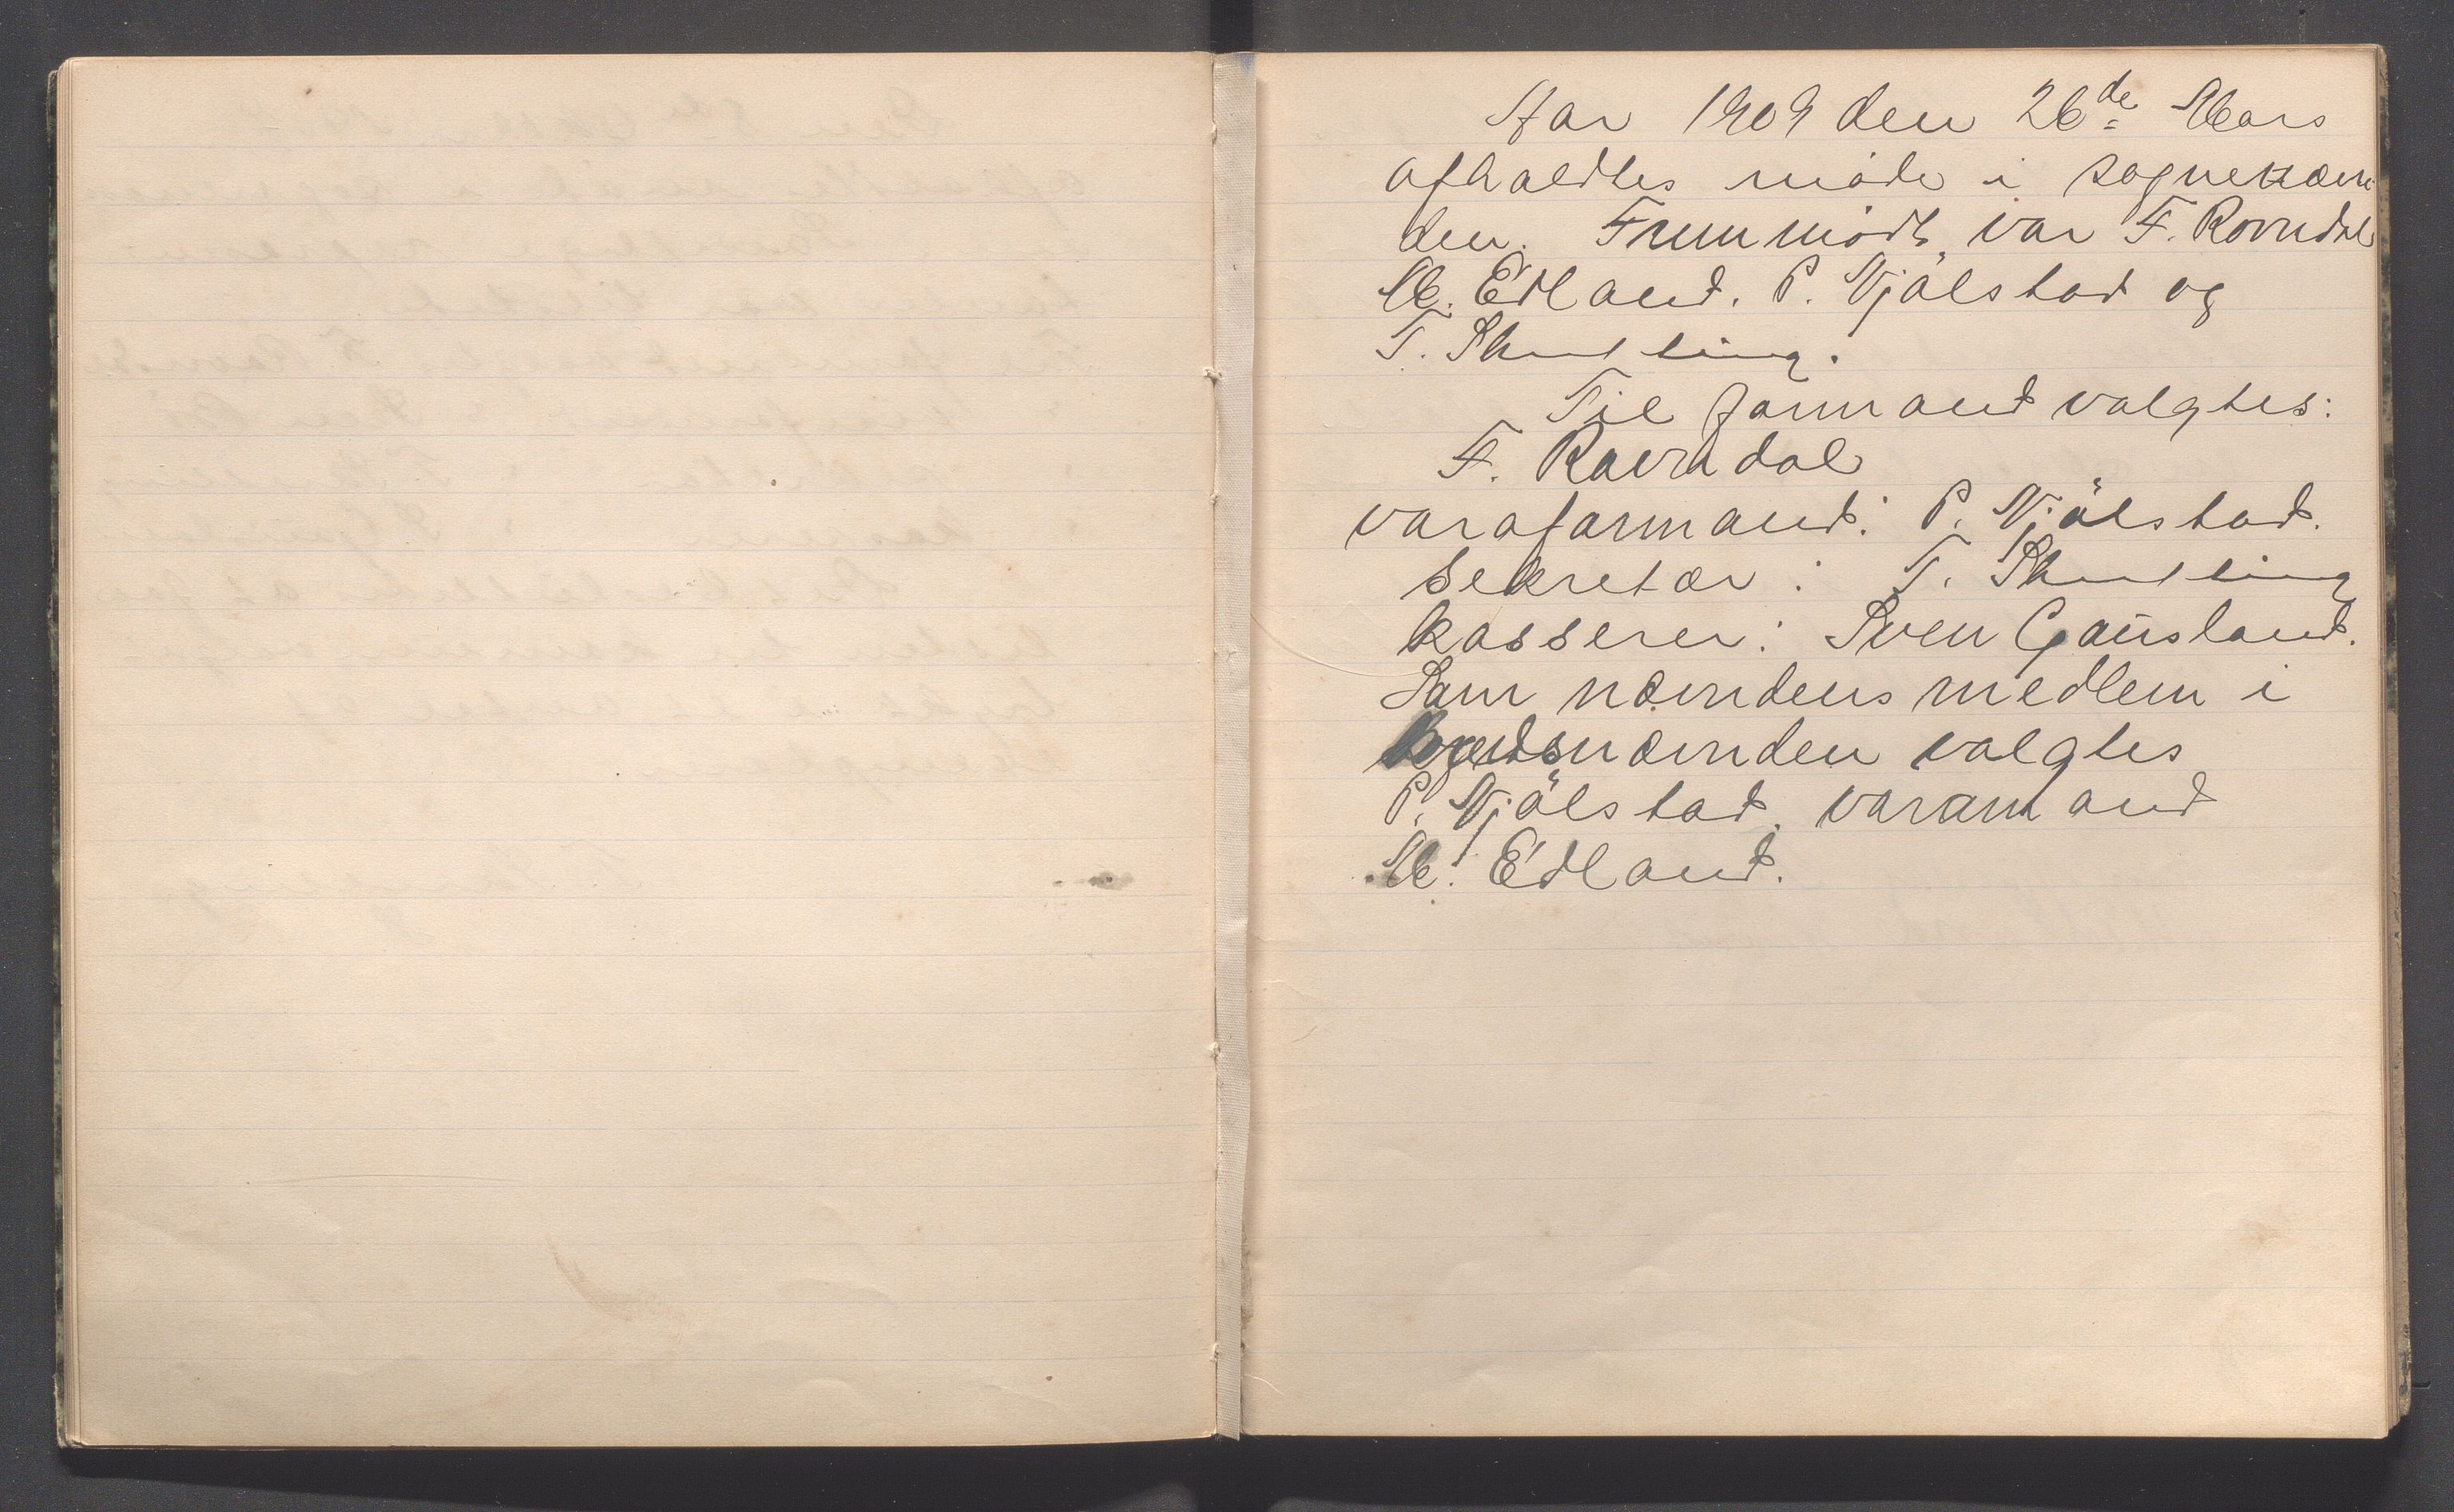 Aar 1909 den 26de Mars
afholdtes møde i sognenævn
den. Fremmødt var F. Ravndal
M. Edland. P. Njålstad og
T. Skutling.
Til formand valgtes:
F. Ravndal
varaformand: P. Njålstad.
Sekretær: T. Skutling
kasserer: Sven Gausland.
Som nævndens medlem i
kredsnævnden valgtes
P. Njålstad. varamand
M. Edland.